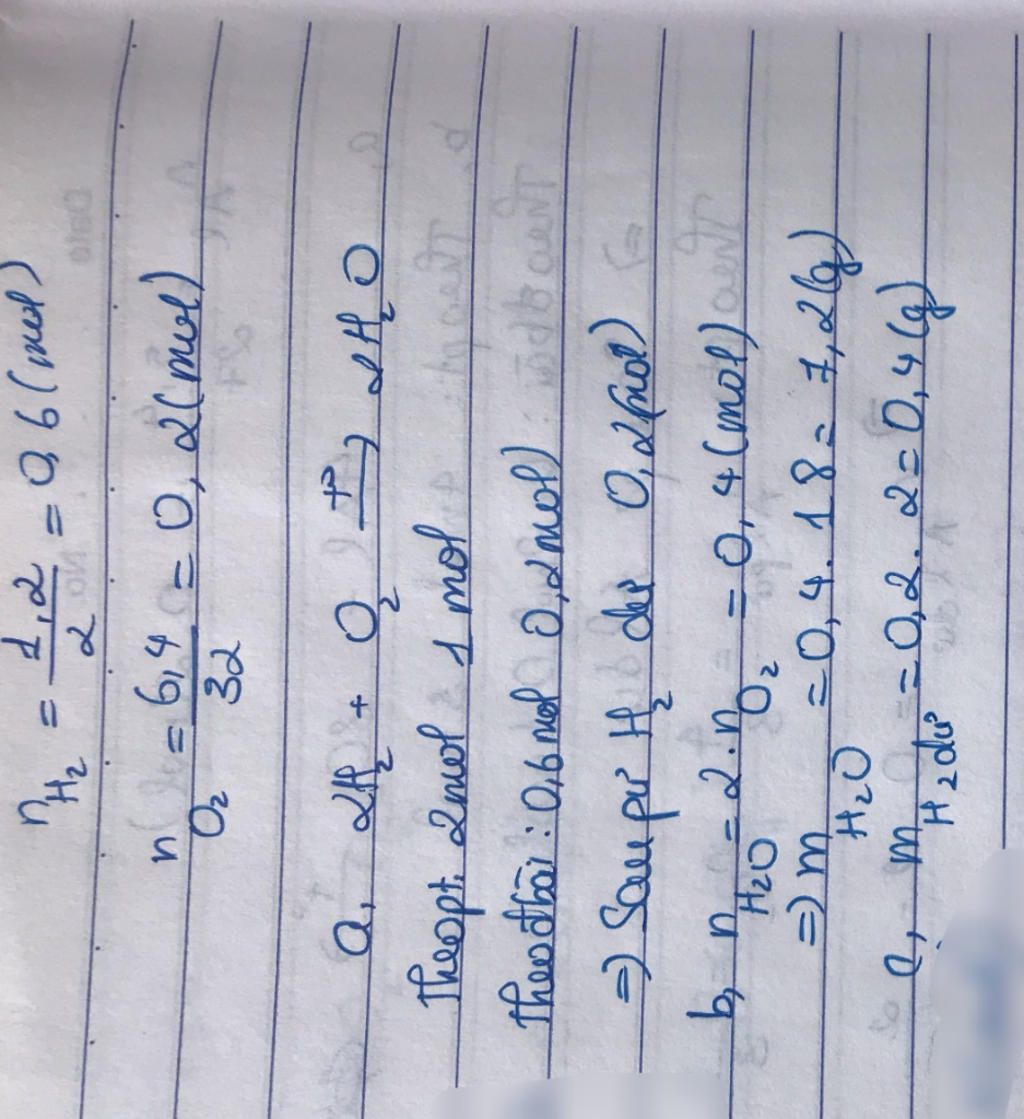 n H₂ = 1,2/2 = 0,6 (mol)
n O₂ = 6,4/32 = 0,2 (mol)
a, 2H₂ + O₂ t°→ 2H₂O
Theo pt: 2mol 1 mol
Theo đbài: 0,6 mol 0,2 mol
=) Sau pứ H₂ dư 0,2 (mol)
b, n H₂O = 2 . n O₂ = 0,4 (mol)
=) m H₂O = 0,4 . 18 = 7,2 (g)
c, m H₂ dư = 0,2 . 2 = 0,4 (g)